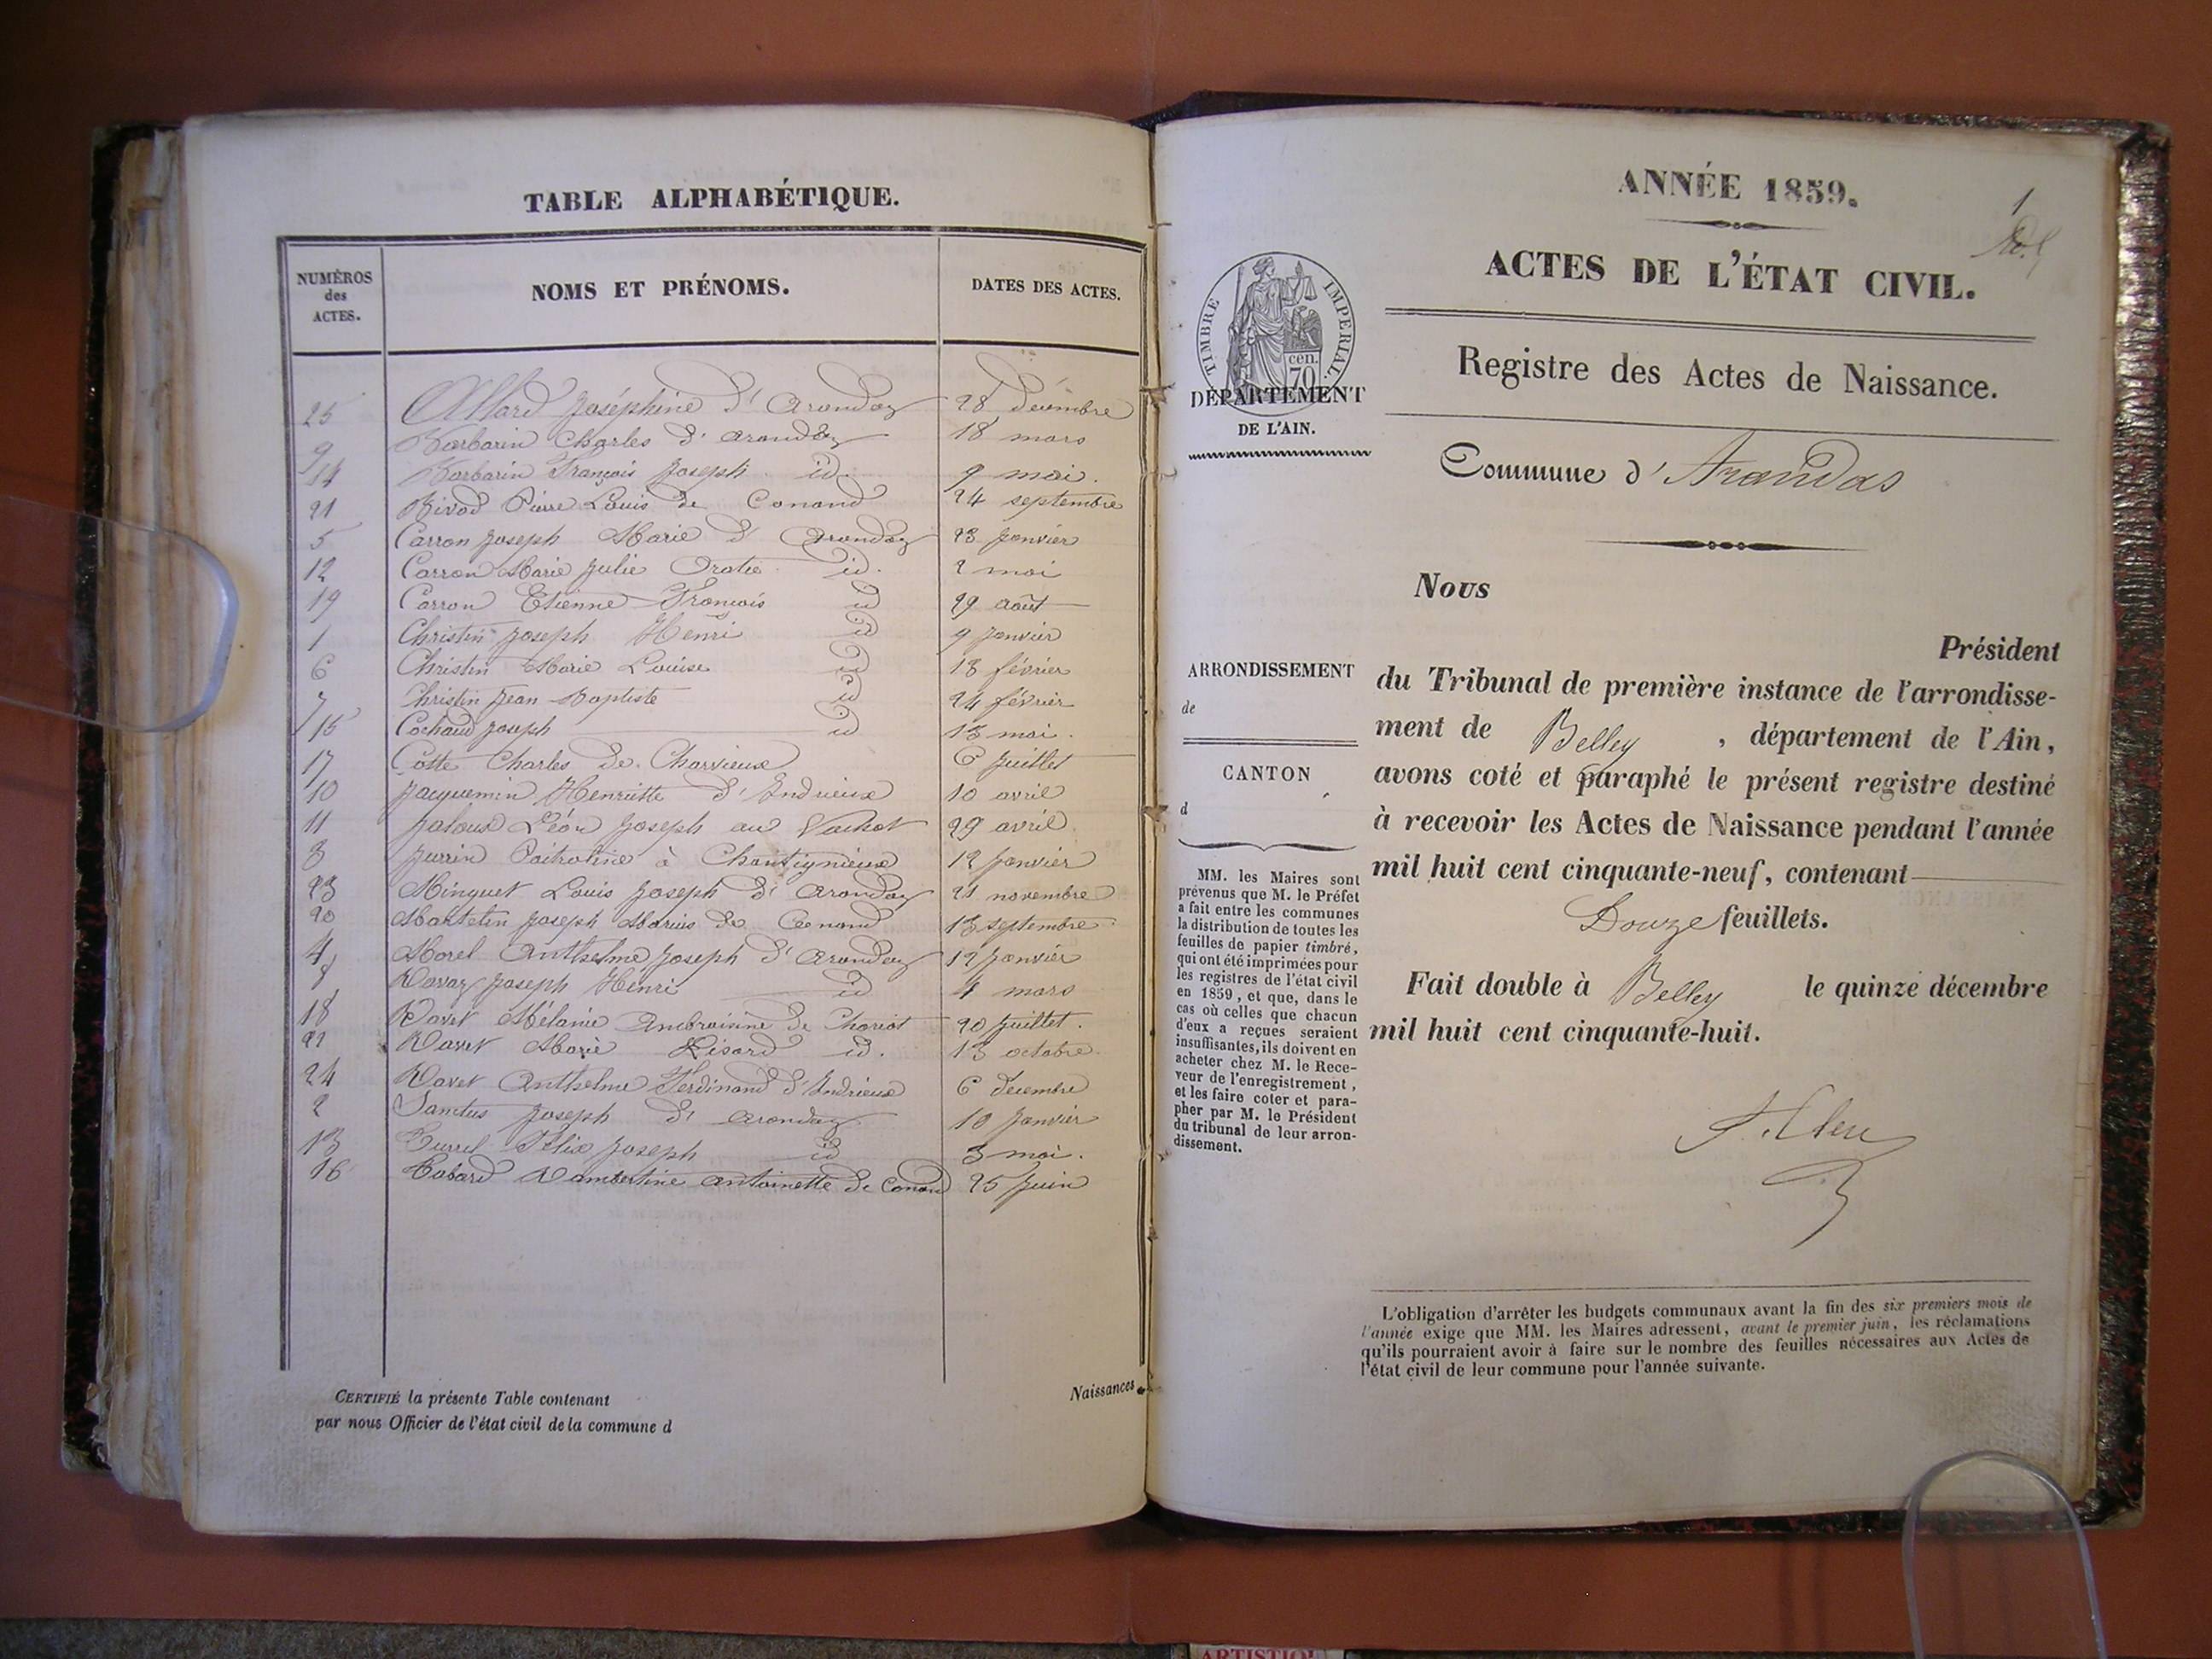 TABLE ALPHABÉTIQUE.
NUMÉROS
des
ACTES.
NOMS ET PRÉNOMS.
DATES DES ACTES.
25 Allard Joséphine d'arandaz 28 décembre
9 Barbarin Charles d'arandaz 18 mars
14 Barbarin François Joseph id. 9 mai.
21 Bivod Pierre Louis de Conand 24 septembre
5 Carron Joseph Marie d'arandaz 23 Janvier
12 Carron Marie Julie id. 2 mai
19 Carron Etienne François id 29 août
1 Christin Joseph Henri id 9 Janvier
6 Christin Marie Louise id 13 février
7 Christin Jean Baptiste id 24 février
15 Cochaud Joseph id 13 mai.
17 Cotte Charles de Charvieux 6 Juillet
10 Jacquemin Henriette d'Indrieux 10 avril
11 Jaloux Léon Joseph au 29 avril
3 à 12 Janvier
23 Minguet Louis Joseph d'arandaz 21 novembre
20 Martelin Joseph Marius de Conand 13 septembre
4 Morel Anthelme Joseph d'arandaz 12 Janvier
8 Joseph Henri id 4 mars
18 Ravet Mélanie Ambroisine de 20 Juillet.
22 Ravet Marie id. 13 octobre
24 Ravet Anthelme Ferdinand d'Indrieux 6 décembre
2 Sanctus Joseph d'arandaz 10 Janvier
13 Félix Joseph id 3 mai.
16 Lambertine antoinette de Conand 25 Juin
CERTIFIÉ la présente Table contenant
par nous Officier de l'état civil de la commune d
Naissances.
ANNÉE 1859.
1
ACTES DE L'ÉTAT CIVIL.
TIMBRE IMPERIAL
cen.
70
DÉPARTEMENT
DE L'AIN.
Registre des Actes de Naissance.
Commune d'Arandas
Nous
Président
du Tribunal de première instance de l'arrondisse-
ment de Belley , département de l'Ain,
avons coté et paraphé le présent registre destiné
à recevoir les Actes de Naissance pendant l'année
mil huit cent cinquante-neuf, contenant
Douze feuillets.
Fait double à Belley le quinze décembre
mil huit cent cinquante-huit.
ARRONDISSEMENT
de
CANTON
d
MM. les Maires sont
prévenus que M. le Préfet
a fait entre les communes
la distribution de toutes les
feuilles de papier timbré,
qui ont été imprimées pour
les registres de l'état civil
en 1859, et que, dans le
cas où celles que chacun
d'eux a reçues seraient
insuffisantes, ils doivent en
acheter chez M. le Rece-
veur de l'enregistrement,
et les faire coter et para-
pher par M. le Président
du tribunal de leur arron-
dissement.
L'obligation d'arrêter les budgets communaux avant la fin des six premiers mois de
l'année exige que MM. les Maires adressent, avant le premier juin, les réclamations
qu'ils pourraient avoir à faire sur le nombre des feuilles nécessaires aux Actes de
l'état civil de leur commune pour l'année suivante.